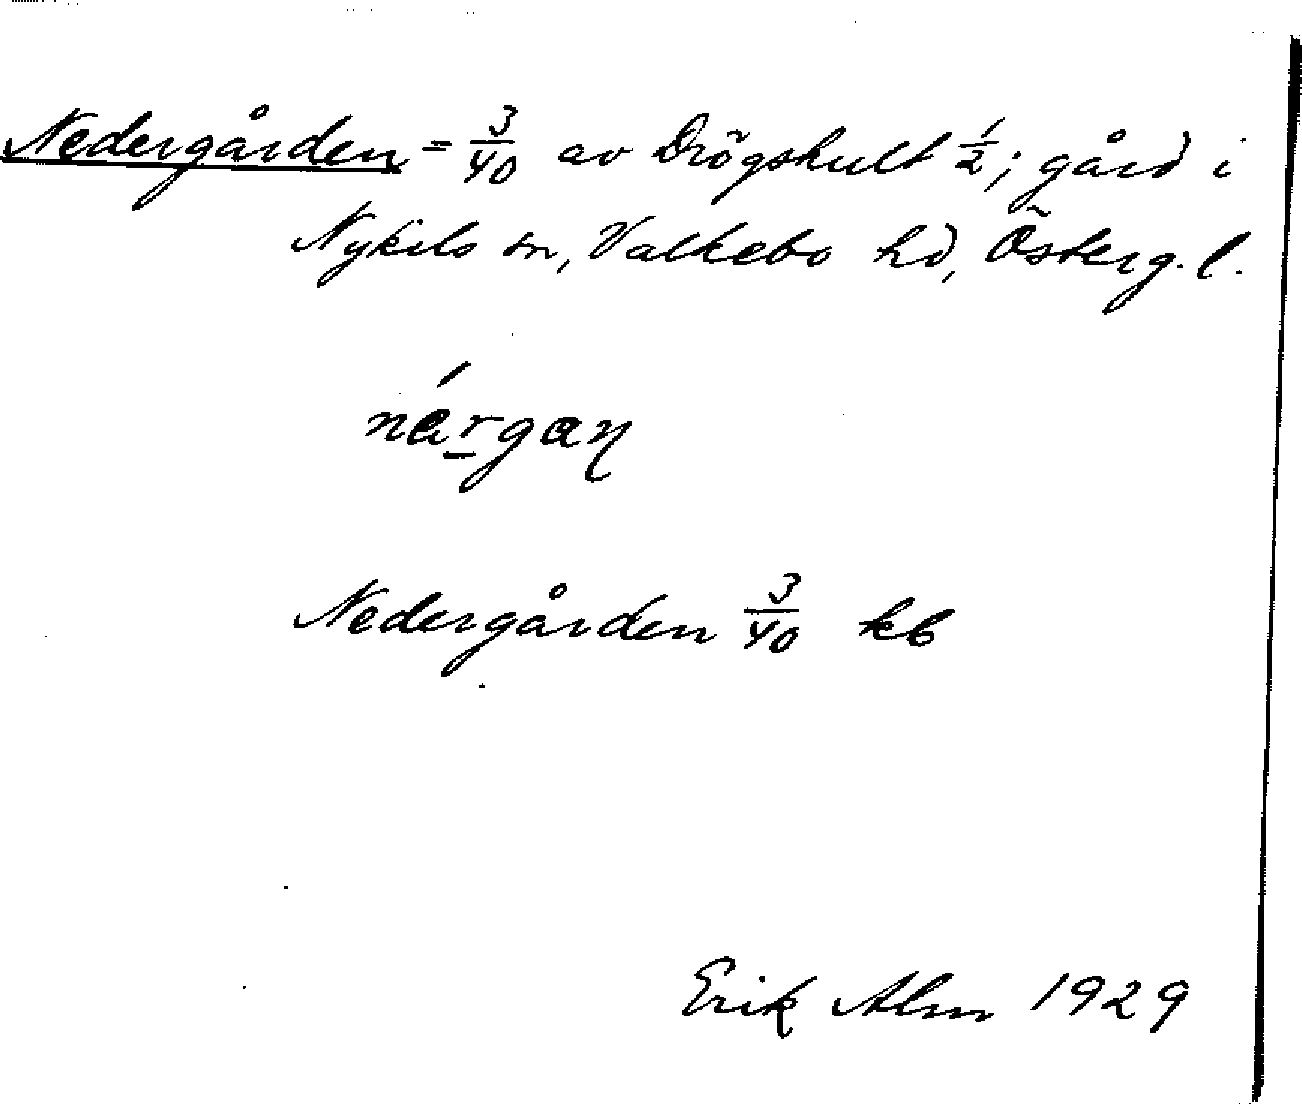 Nedergården = 3/40 av Drögshult 1/2; gård i
Nykils sn, Valkebo hd, Österg. l.
nárgaŋ
Nedergården 3/40 kb
Erik Alm 1929